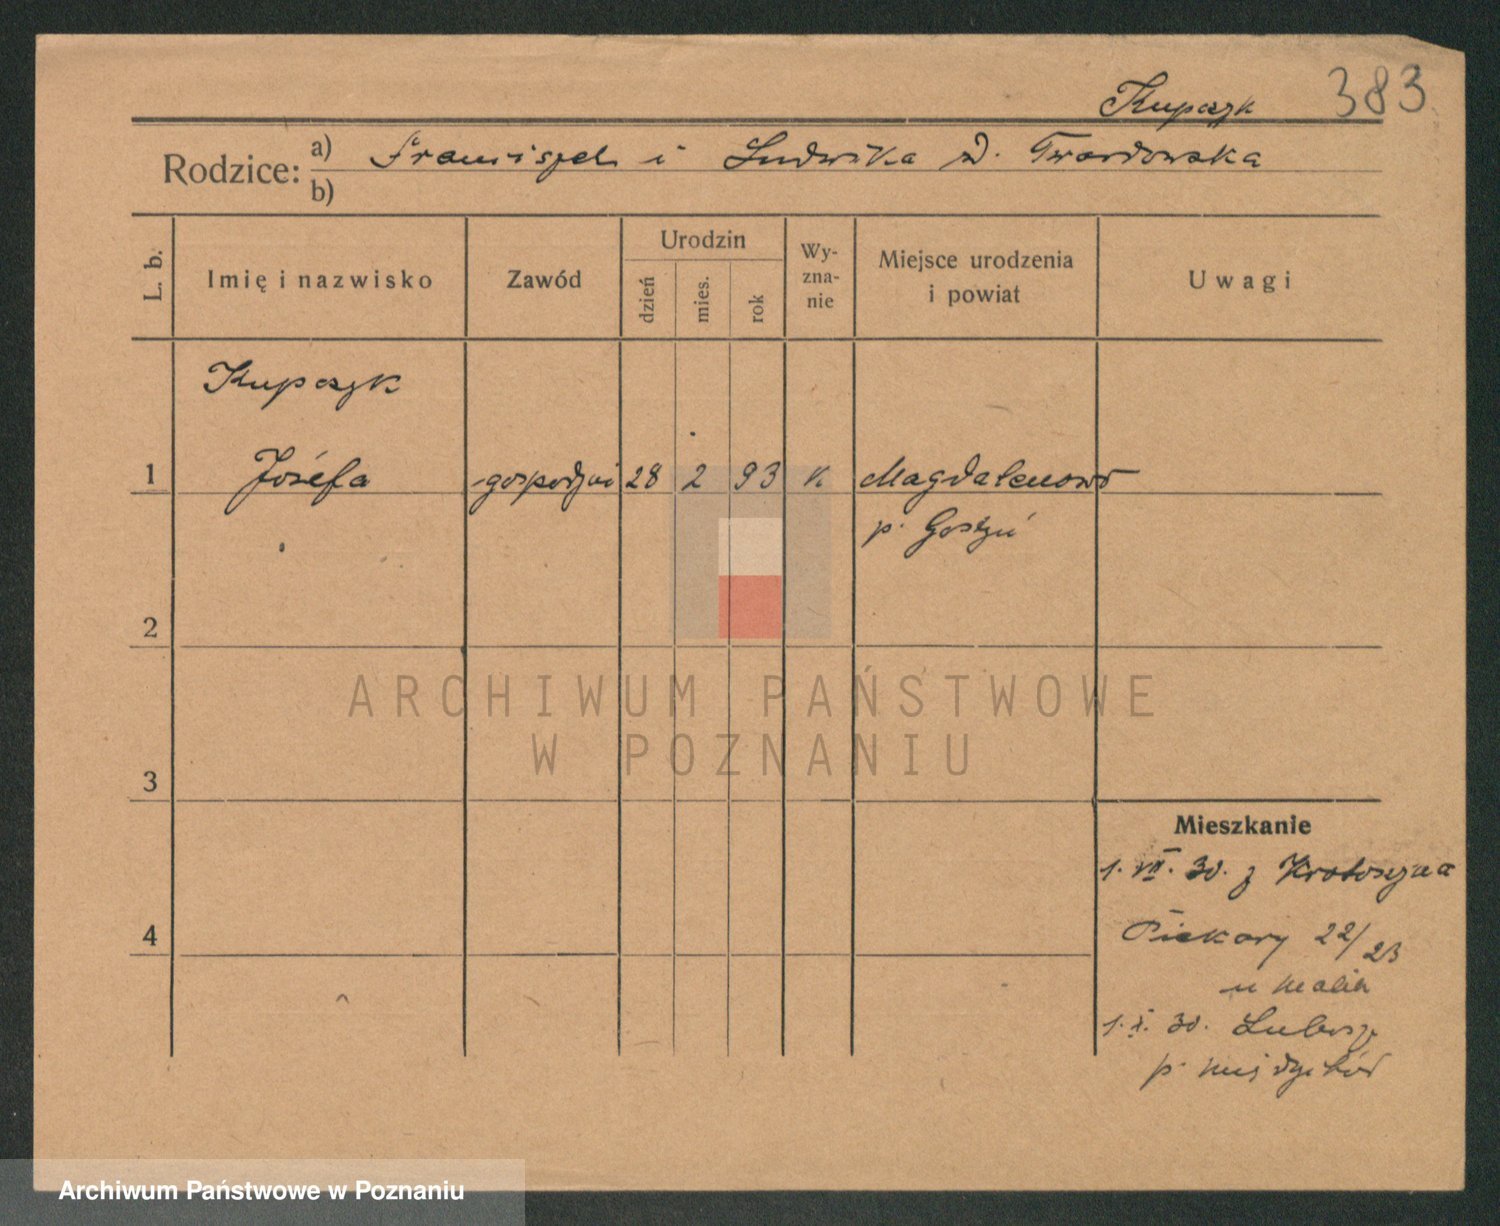 383
Kupczyk
Rodzice: a) Franciszek i Ludwika z d. Twardowska
b)
L. b.
Imię i nazwisko
Zawód
Urodzin
dzień
mies.
rok
Wy-
zna-
nie
Miejsce urodzenia
i powiat
Uwagi
Kupczyk
1 Józefa gospodyni 28 2 93 k Magdalenowo
p. Gostyń
2
ARCHIWUM PAŃSTWOWE
W POZNANIU
3
Mieszkanie
1. VII. 30. z Krotoszyna
4
Piekary 22/23
u
1. X. 30. Lubosz
p. Międzychód
Archiwum Państwowe w Poznaniu